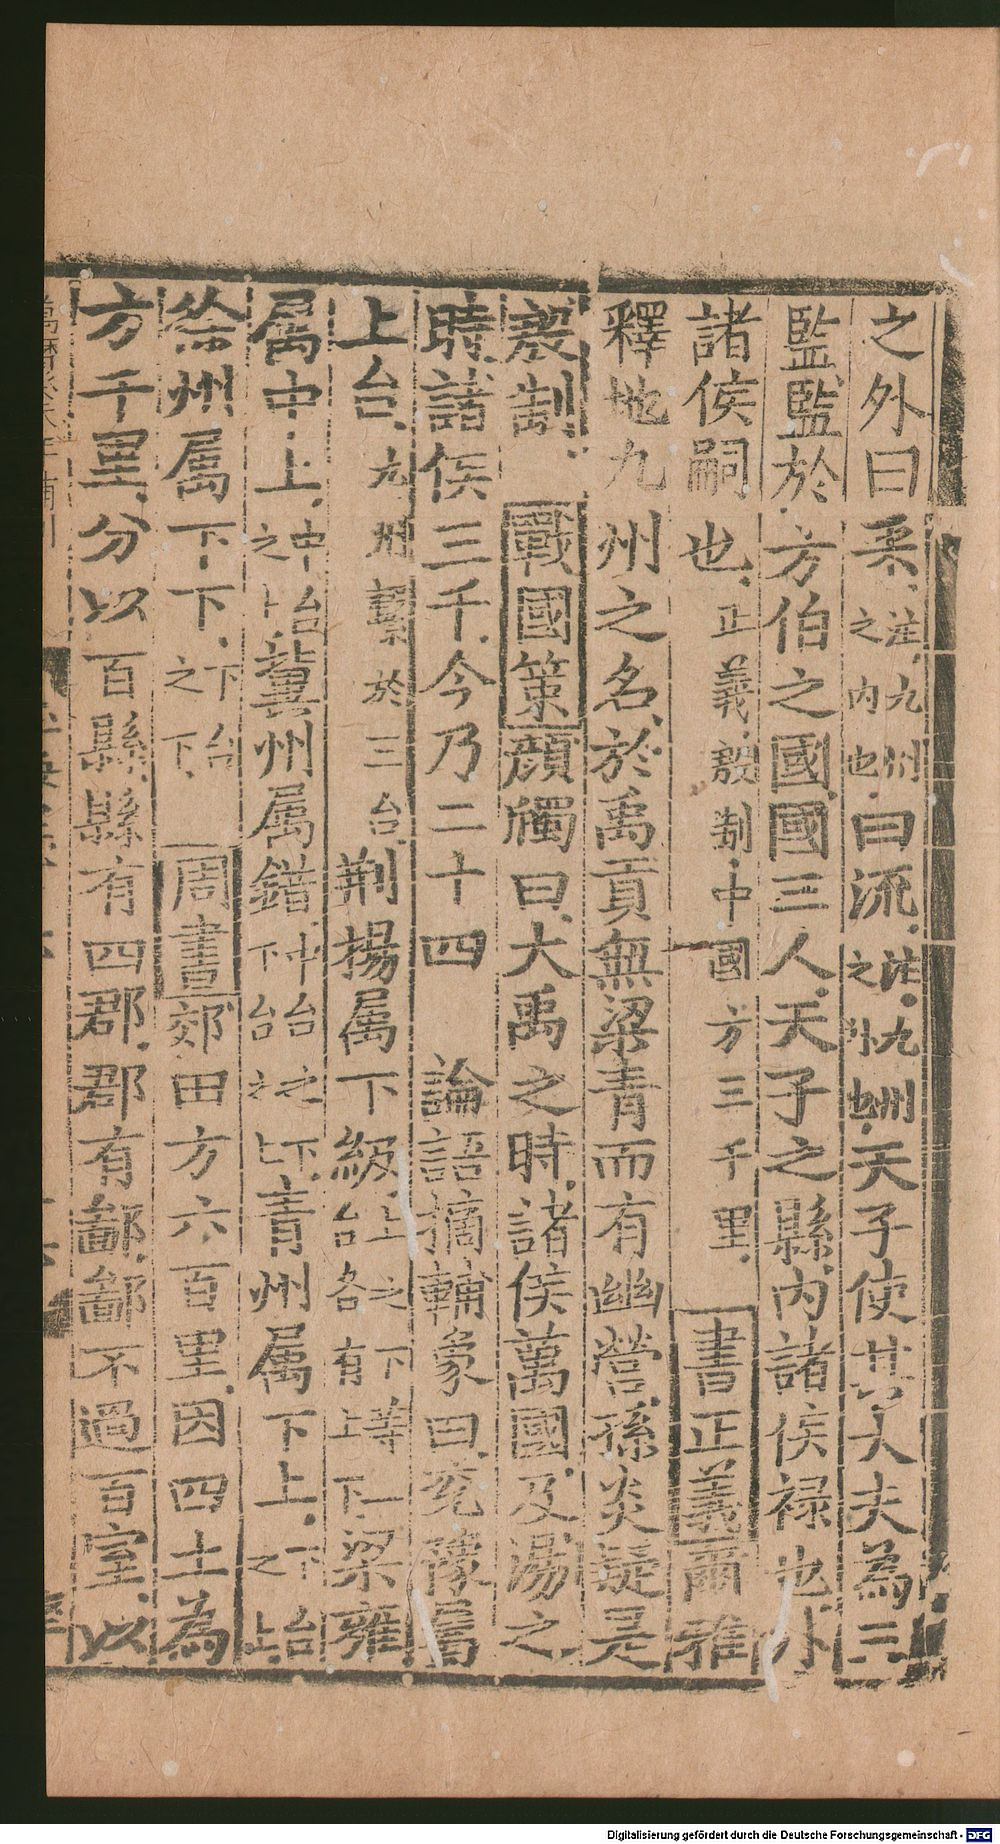 之外曰采注九州之内也曰流注九州之外也天子使其大夫為三
監監於方伯之國國三人天子之縣内諸侯禄也外
諸侯嗣也正義殷制中國方三千里書正義爾雅
釋地九州之名於禹貢無梁青而有幽營孫炎疑是
殷制戰國策顔斶曰大禹之時諸侯萬國及湯之
時諸侯三千今乃二十四論語摘輔象曰兖豫屬
上台九州繫於三台荆揚屬下級上台之下各有上等下一梁雍
屬中上中台之上冀州屬錯中台之下下台之上青州屬下上下台之上
徐州屬下下下台之下周書郊田方六百里因四土為
方千里分以百縣縣有四郡郡有鄙鄙不過百室以
Digitalisierung gefördert durch die Deutsche Forschungsgemeinschaft - DFG